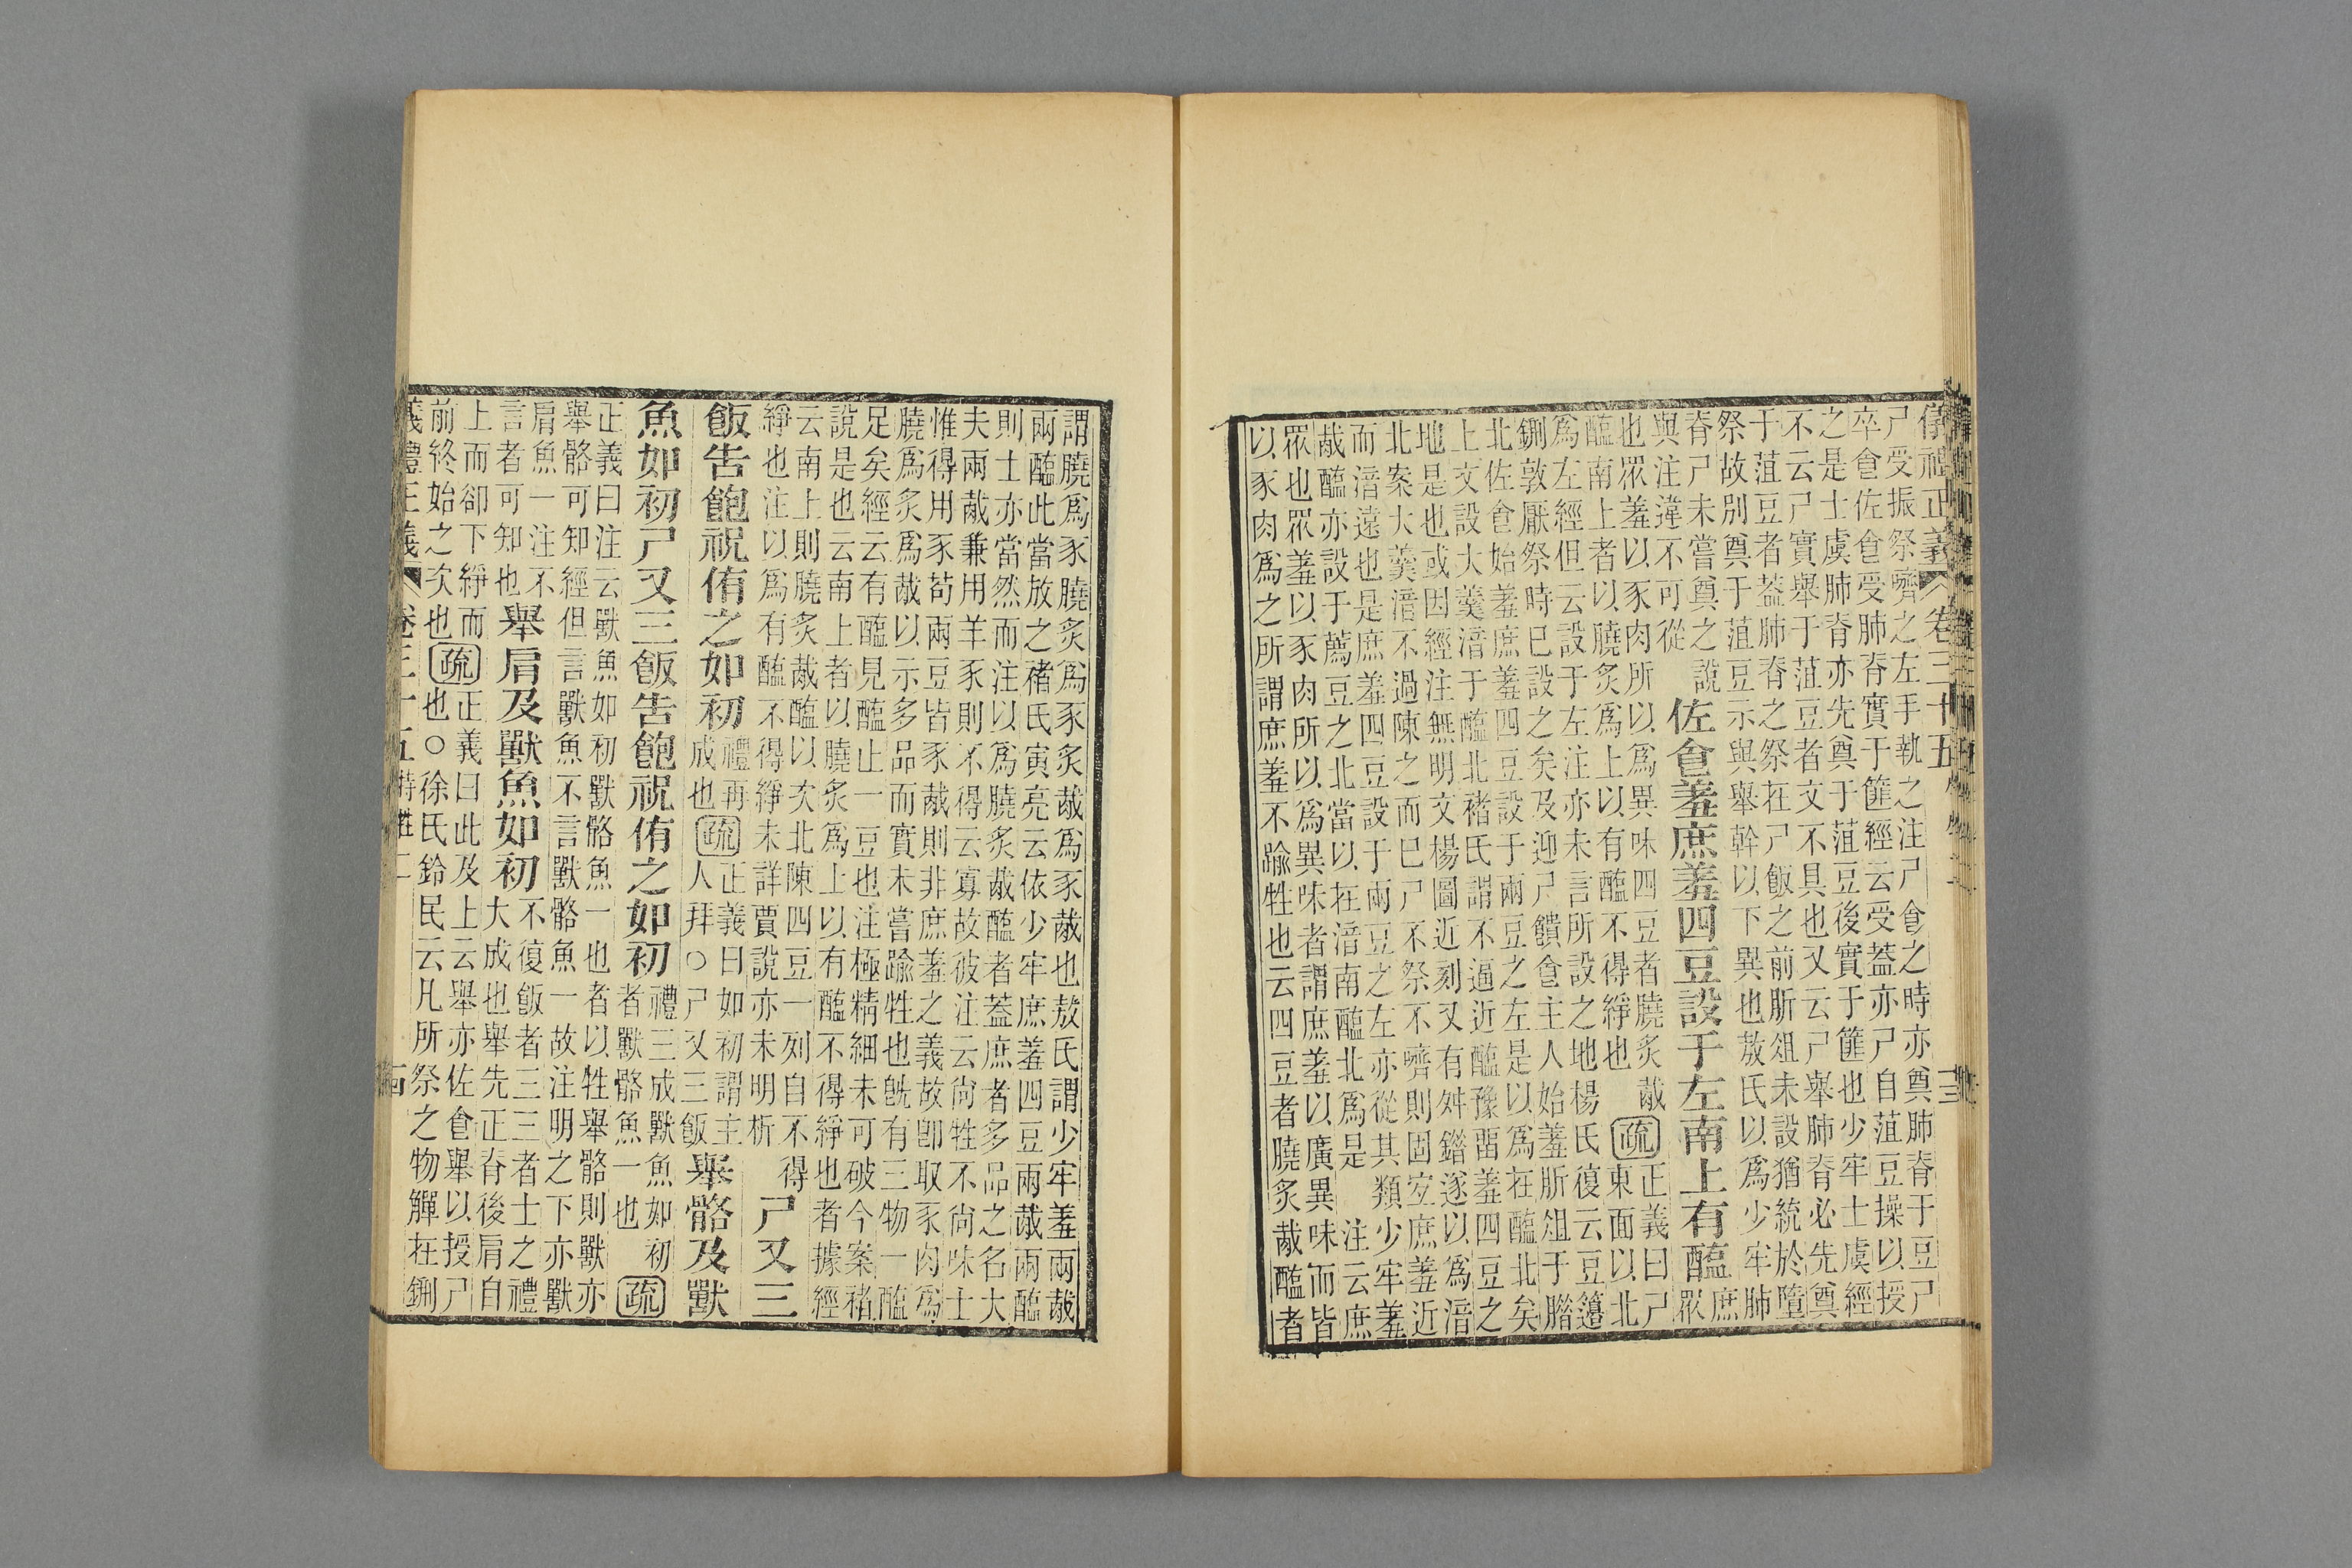 儀禮正義卷三十五
尸受振祭嚌之左手執之注尸食之時亦奠肺脊于豆尸
卒食佐食受肺脊實于篚經云受蓋亦尸自菹豆操以授
之是士虞肺脊亦先奠于菹豆後實于篚也少牢士虞經
不云尸實舉于菹豆者文不具也又云尸舉肺脊必先奠
于菹豆者蓋肺脊之祭在尸飯之前肵俎未設猶統於墮
祭故別奠于菹豆示與舉幹以下異也敖氏以爲少牢肺
脊尸未嘗奠之說
與注違不可從
佐食羞庶羞四豆設于左南上有醢
庶
眾
也眾羞以豕肉所以爲異味四豆者膮炙胾
醢南上者以膮炙爲上以有醢不得綪也
疏
正義曰尸
東面以北
爲左經但云設于左注亦未言所設之地楊氏復云豆籩
鉶敦厭祭時已設之矣及迎尸饋食主人始羞肵俎于腊
北佐食始羞庶羞四豆設于兩豆之左是以爲在醢北矣
上文設大羹湆于醢北褚氏謂不逼近醢豫畱羞四豆之
地是也或因經注無明文楊圖近刻又有舛錯遂以爲湆
北案大羹湆不過陳之而已尸不祭不嚌則固宜庶羞近
而湆遠也是庶羞四豆設于兩豆之左亦從其類少牢羞
胾醢亦設于薦豆之北當以在湆南醢北爲是 注云庶
眾也眾羞以豕肉所以爲異味者謂庶羞以廣異味而皆
以豕肉爲之所謂庶羞不踰牲也云四豆者膮炙胾醢者
謂膮爲豕膮炙爲豕炙胾爲豕胾也敖氏謂少牢羞兩胾
兩醢此當放之褚氏寅亮云依少牢庶羞四豆兩胾兩醢
則士亦當然而注以爲膮炙胾醢者蓋庶者多品之名大
夫兩胾兼用羊豕則不得云寡故彼注云尙牲不尙味士
惟得用豕苟兩豆皆豕胾則非庶羞之義故卽取豕肉爲
膮爲炙爲胾以示多品而實未嘗踰牲也旣有三物一醢
足矣經云有醢見醢止一豆也注極精細未可破今案褚
說是也云南上者以膮炙爲上以有醢不得綪也者據經
云南上則膮炙胾醢以次北陳四豆一列自不得
綪也注以爲有醢不得綪未詳賈說亦未明析
尸又三
飯告飽祝侑之如初
禮再
成也
疏
正義曰如初謂主
人拜○尸又三飯
舉骼及獸
魚如初尸又三飯告飽祝侑之如初
禮三成獸魚如初
者獸骼魚一也
疏
正義曰注云獸魚如初獸骼魚一也者以牲舉骼則獸亦
舉骼可知經但言獸魚不言獸骼魚一故注明之下亦獸
肩魚一注不
言者可知也
舉肩及獸魚如初
不復飯者三三者士之禮
大成也舉先正脊後肩自
上而卻下綪而
前終始之次也
疏
正義曰此及上云舉亦佐食舉以授尸
也○徐氏鈐民云凡所祭之物觶在鉶
儀禮正義卷三十五特牲二